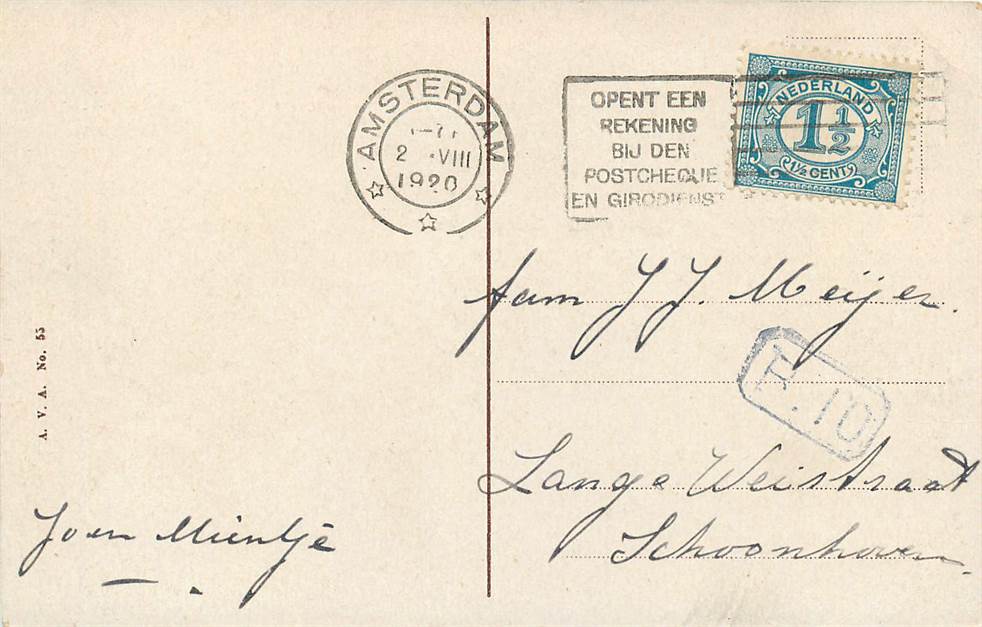 AMSTERDAM
2 VIII
1920
OPENT EEN
REKENING
BIJ DEN
POSTCHEQUE
EN GIRODIENST
NEDERLAND
1 1/2
1½ CENT
fam J J. Meijer
Lange Weistraat
Schoonhoven.
A. V. A. No. 55
Joen Mientje